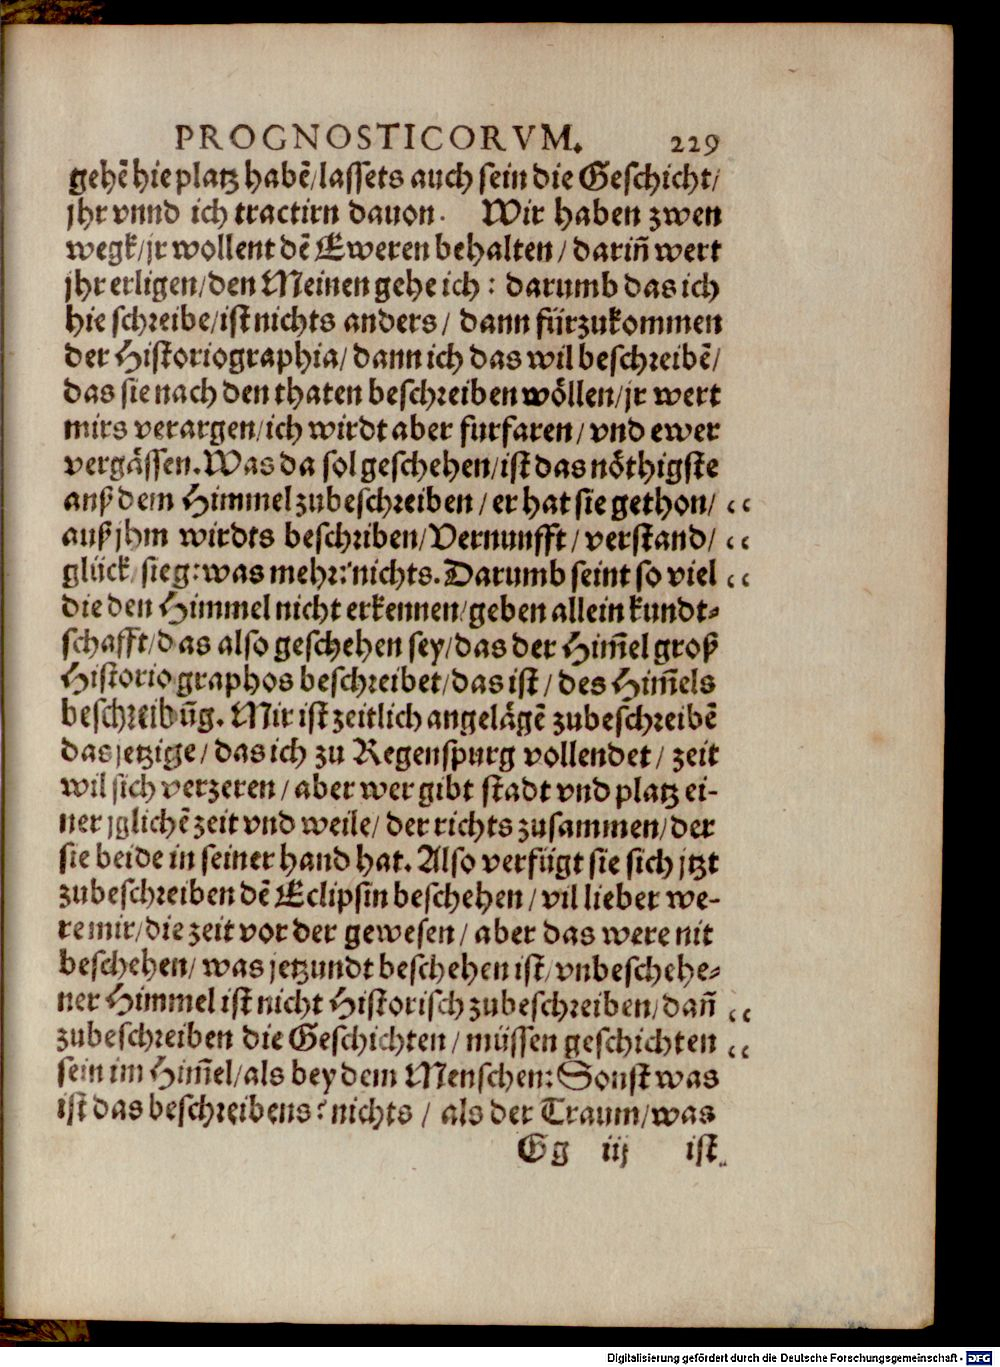 PROGNOSTICORVM. 229
gehē hie platz habē/lassets auch sein die Geschicht/
jhr vnnd ich tractirn dauon. Wir haben zwen
wegk/jr wollent dē Eweren behalten/ darin̄ wert
jhr erligen/den Meinen gehe ich: darumb das ich
hie schreibe/ist nichts anders/ dann fürzukommen
der Historiographia/dann ich das wil beschreibē/
das sie nach den thaten beschreiben wöllen/jr wert
mirs verargen/ich wirdt aber furfaren/vnd ewer
vergässen. Was da sol geschehen/ist das nöthigste
auß dem Himmel zubeschreiben/er hat sie gethon/ „
auß jhm wirdts beschriben/Vernunfft/verstand/ „
glück/sieg: was mehr? nichts. Darumb seint so viel „
die den Himmel nicht erkennen/geben allein kundt-
schafft/das also geschehen sey/das der Him̄el groß
Historiographos beschreibet/das ist/des Him̄els
beschreibūg. Mir ist zeitlich angelägē zubeschreibē
das jetzige/das ich zu Regenspurg vollendet/ zeit
wil sich verzeren/aber wer gibt stadt vnd platz ei-
ner jglichē zeit vnd weile/ der richts zusammen/der
sie beide in seiner hand hat. Also verfügt sie sich jtzt
zubeschreiben dē Eclipsin beschehen/vil lieber we-
re mir/die zeit vor der gewesen/aber das were nit
beschehen/was jetzundt beschehen ist/vnbeschehe-
ner Himmel ist nicht Historisch zubeschreiben/dan̄ „
zubeschreiben die Geschichten/müssen geschichten „
sein im Him̄el/als bey dem Menschen: Sonst was
ist das beschreibens? nichts/ als der Traum/was
Gg iij ist
Digitalisierung gefördert durch die Deutsche Forschungsgemeinschaft - DFG